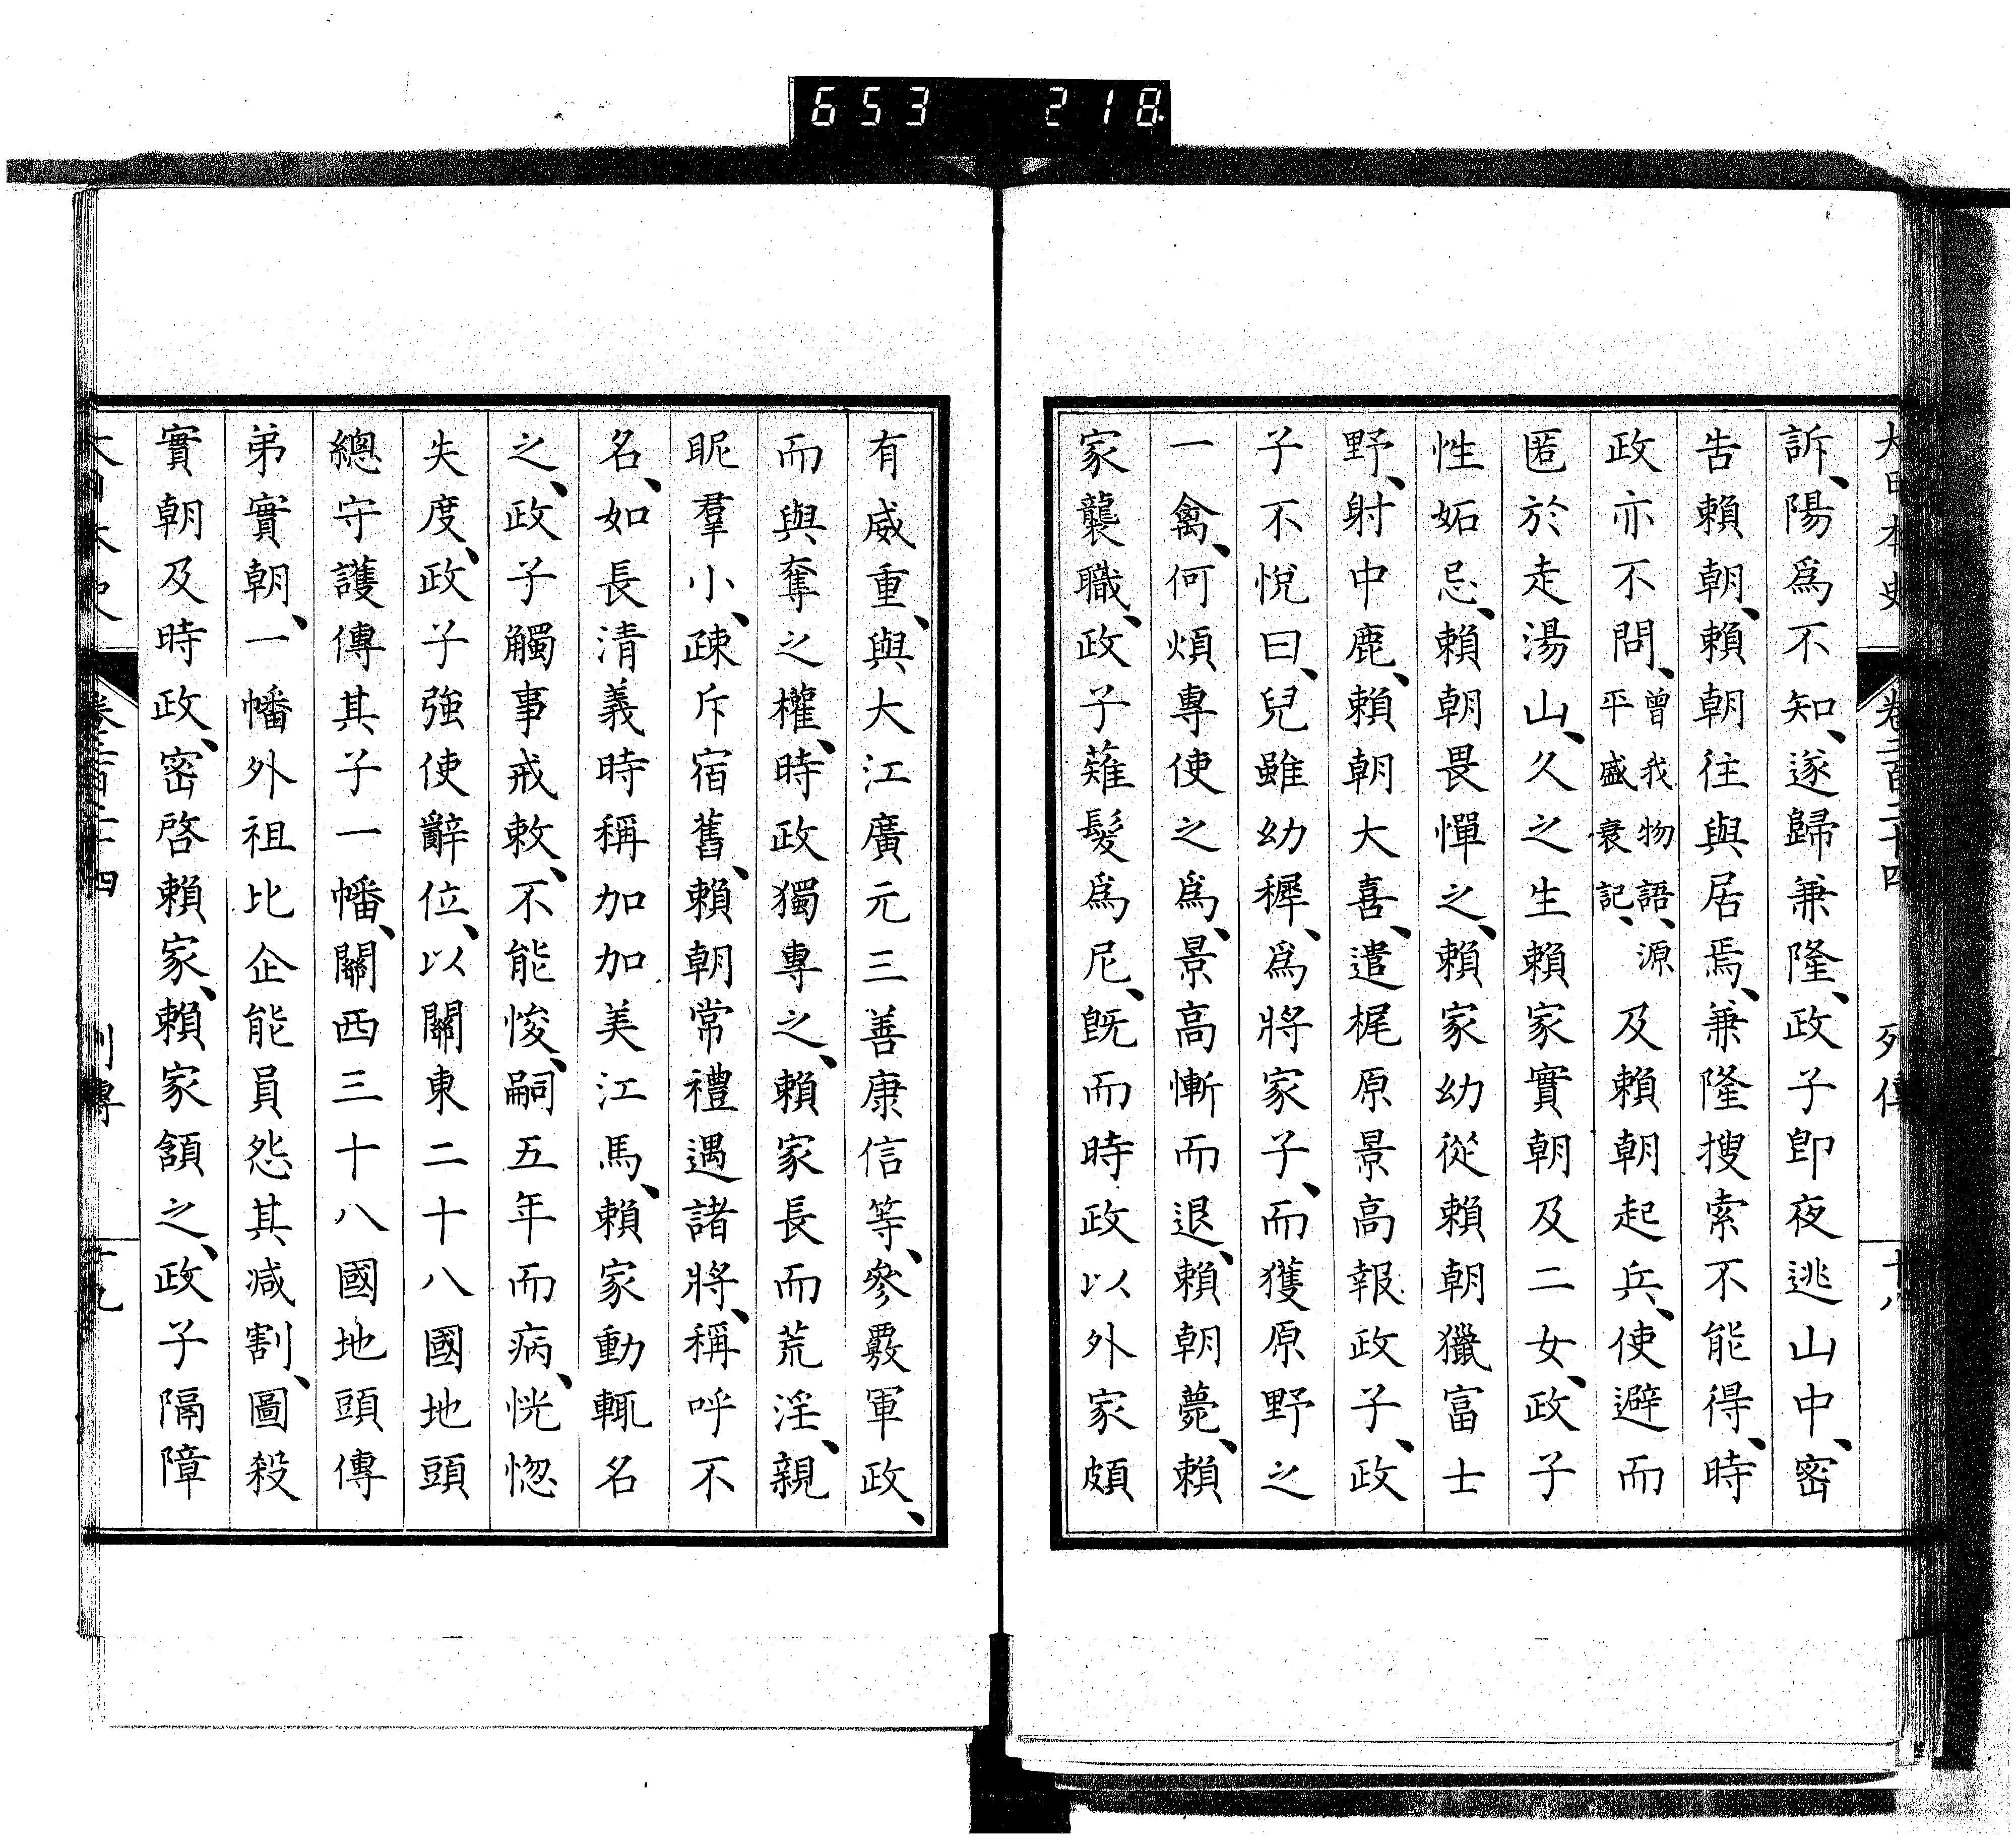 653 218
大日本史 卷二百二十四 列傳 十八
訴、陽爲不知、遂歸兼隆、政子卽夜逃山中、密
告賴朝、賴朝往與居焉、兼隆搜索不能得、時
政亦不問、曾我物語、源平盛衰記、及賴朝起兵、使避而
匿於走湯山、久之生賴家實朝及二女、政子
性妬忌、賴朝畏憚之、賴家幼從賴朝獵富士
野、射中鹿、賴朝大喜、遣梶原景高報政子、政
子不悅曰、兒雖幼穉、爲將家子、而獲原野之
一禽、何煩專使之爲、景高慚而退、賴朝薨、賴
家襲職、政子薙髮爲尼、旣而時政以外家頗
有威重、與大江廣元三善康信等、參覈軍政、
而與奪之權、時政獨專之、賴家長而荒淫、親
昵羣小、疎斥宿舊、賴朝常禮遇諸將、稱呼不
名、如長清義時稱加加美江馬、賴家動輒名
之、政子觸事戒敕、不能悛、嗣五年而病、恍惚
失度、政子強使辭位、以關東二十八國地頭
總守護傳其子一幡、關西三十八國地頭傳
弟實朝、一幡外祖比企能員怨其減割、圖殺
實朝及時政、密啓賴家、賴家頷之、政子隔障
大日本史 卷二百二十四 列傳 十九